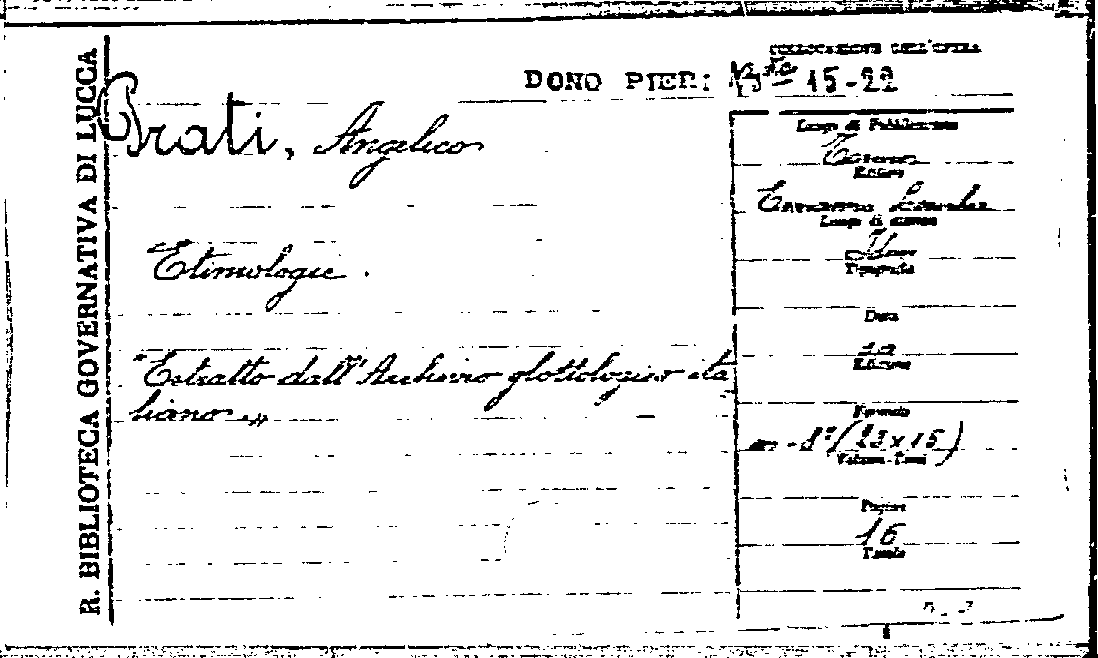 R. BIBLIOTECA GOVERNATIVA DI LUCCA
COLLOCAZIONE DELL'OPERA
DONO PIERI 15-22
Prati, Angelico
Etimologie.
"Estratto dall'Archivio glottologico ita
liano„
Luogo di Pubblicazione
Torino
Editore
Ermanno Loescher
Luogo di stampa
Tipografia
Data
Edizione
Formato
in-8° (23x15)
Volumi-Tomi
Pagine
16
Tavole